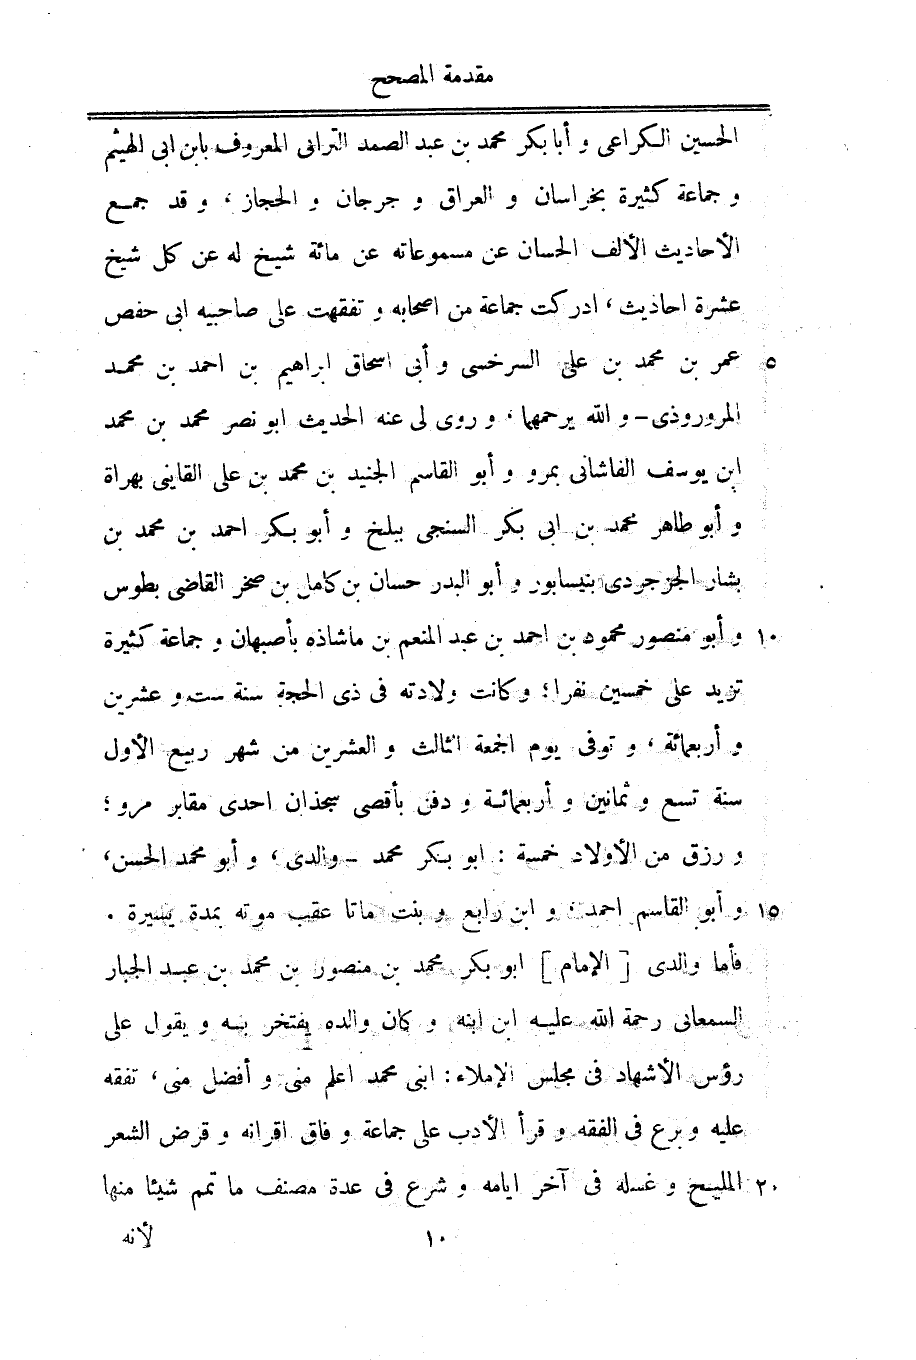 مقدمة المصحح
الحسين الكراعى و أبا بكر محمد بن عبد الصمد الترابى المعروف بابن ابى الهيثم
و جماعة كثيرة بخراسان و العراق و جرجان و الحجاز ، و قد جمع
الأحاديث الألف الحسان عن مسموعاته عن مائة شيخ له عن كل شيخ
عشرة احاديث ، ادركت جماعة من اصحابه و تفقهت على صاحبيه ابى حفص
٥ عمر بن محمد بن على السرخسى و أبى اسحاق ابراهيم بن احمد بن محمد
المروروذى – و الله يرحمهما ، و روى لى عنه الحديث ابو نصر محمد بن محمد
ابن يوسف الفاشانى بمرو و أبو القاسم الجنيد بن محمد بن على القاينى بهراة
و أبو طاهر محمد بن ابى بكر السنجى ببلخ و أبو بكر احمد بن محمد بن
بشار الخرجردى بنيسابور و أبو البدر حسان بن كامل بن صخر القاضى بطوس
١٠ و أبو منصور محمود بن احمد بن عبد المنعم بن ماشاذه بأصبهان و جماعة كثيرة
تزيد على خمسين نفرا ؛ و كانت ولادته فى ذى الحجة سنة ست و عشرين
و أربعمائة ، و توفى يوم الجمعة الثالث و العشرين من شهر ربيع الأول
سنة تسع و ثمانين و أربعمائة و دفن بأقصى سجذان احدى مقابر مرو ؛
و رزق من الأولاد خمسة : ابو بكر محمد – والدى ، و أبو محمد الحسن ،
١٥ و أبو القاسم احمد ، و ابن رابع و بنت ماتا عقب موته بمدة يسيرة .
فأما والدى [ الإمام ] ابو بكر محمد بن منصور بن محمد بن عبد الجبار
السمعانى رحمة الله عليه ابن ابنه و كان والده يفتخر به و يقول على
رؤس الأشهاد فى مجلس الإملاء : ابنى محمد اعلم منى و أفضل منى ، تفقه
عليه و برع فى الفقه و قرأ الأدب على جماعة و فاق اقرانه و قرض الشعر
٢٠ المليح و غسله فى آخر ايامه و شرع فى عدة مصنف ما تمم شيئا منها
١٠ لأنه